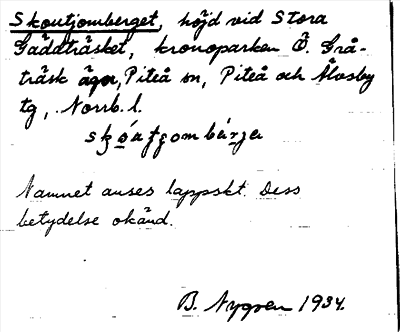 Skoutjomberget, höjd vid Stora
Gäddträsket, kronoparken Ö. Grå-
träsk ägor, Piteå sn, Piteå och Älvsby
tg, Norrb. l.
Namnet anses lappskt. Dess
betydelse okänd.
B. Nygren 1934.